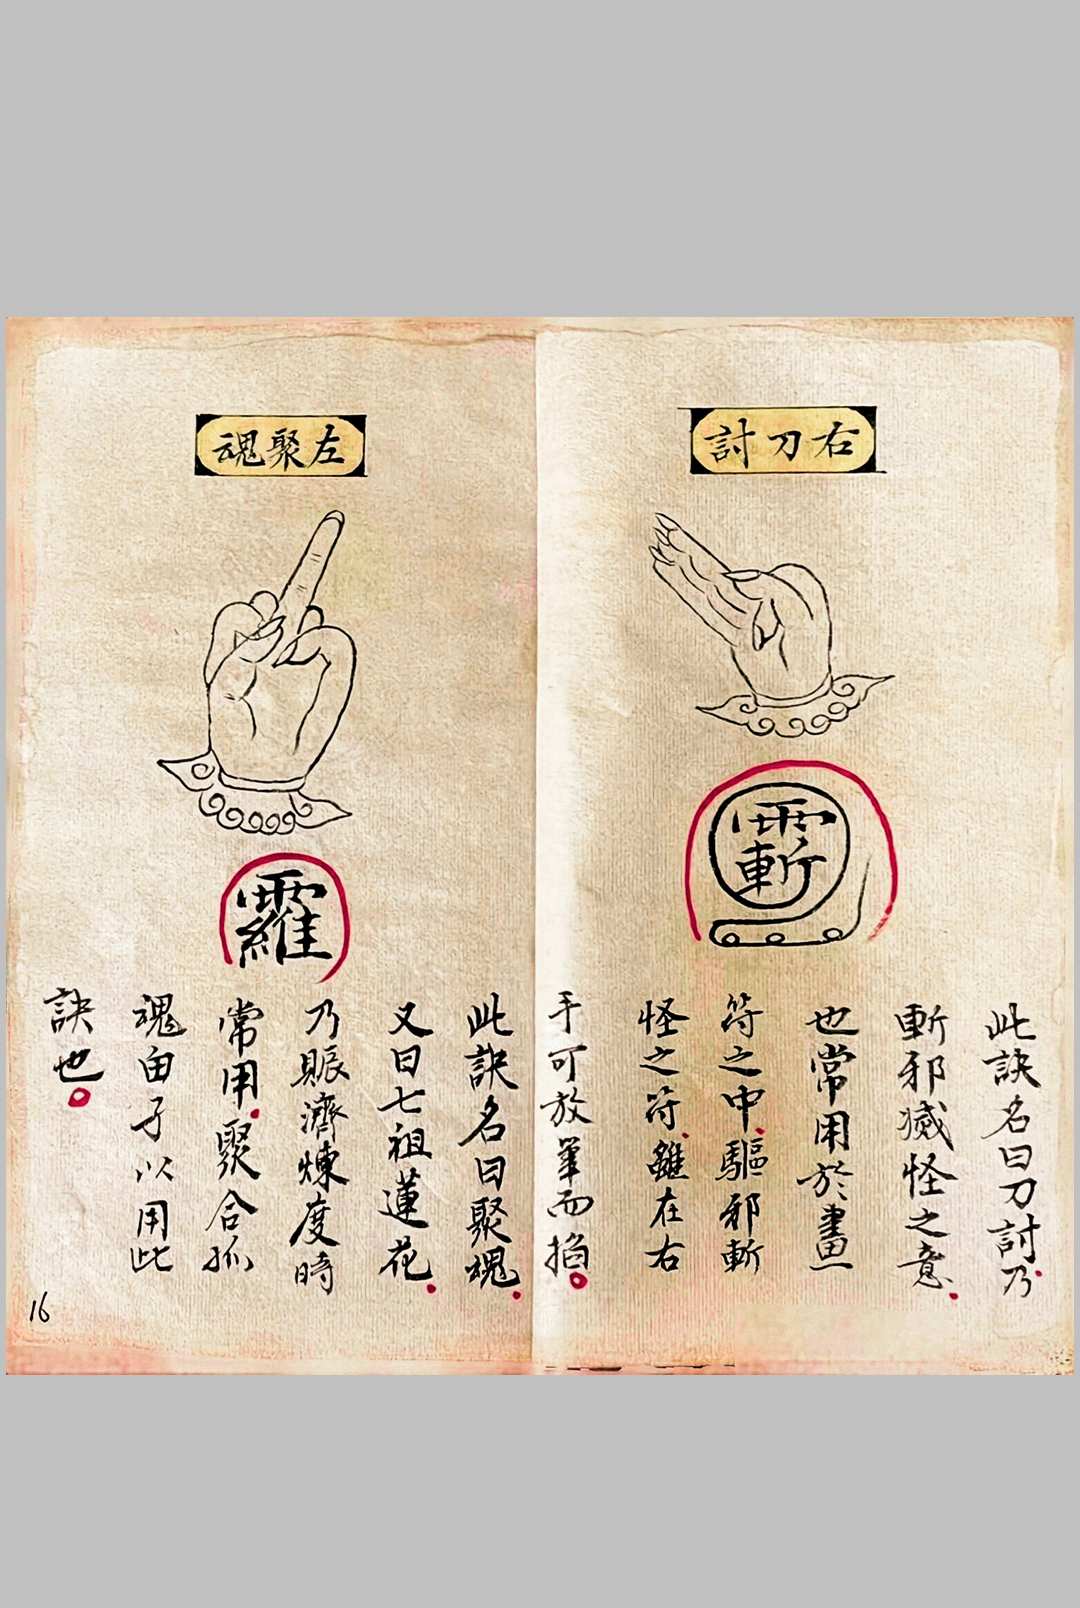 右刀討
此訣名曰刀討乃
斬邪滅怪之意
也常用於畫
符之中驅邪斬
怪之符雖在右
手可放筆而掐
左聚魂
此訣名曰聚魂
又曰七祖蓮花
乃賑濟煉度時
常用聚合孤
魂由子以用此
訣也
16